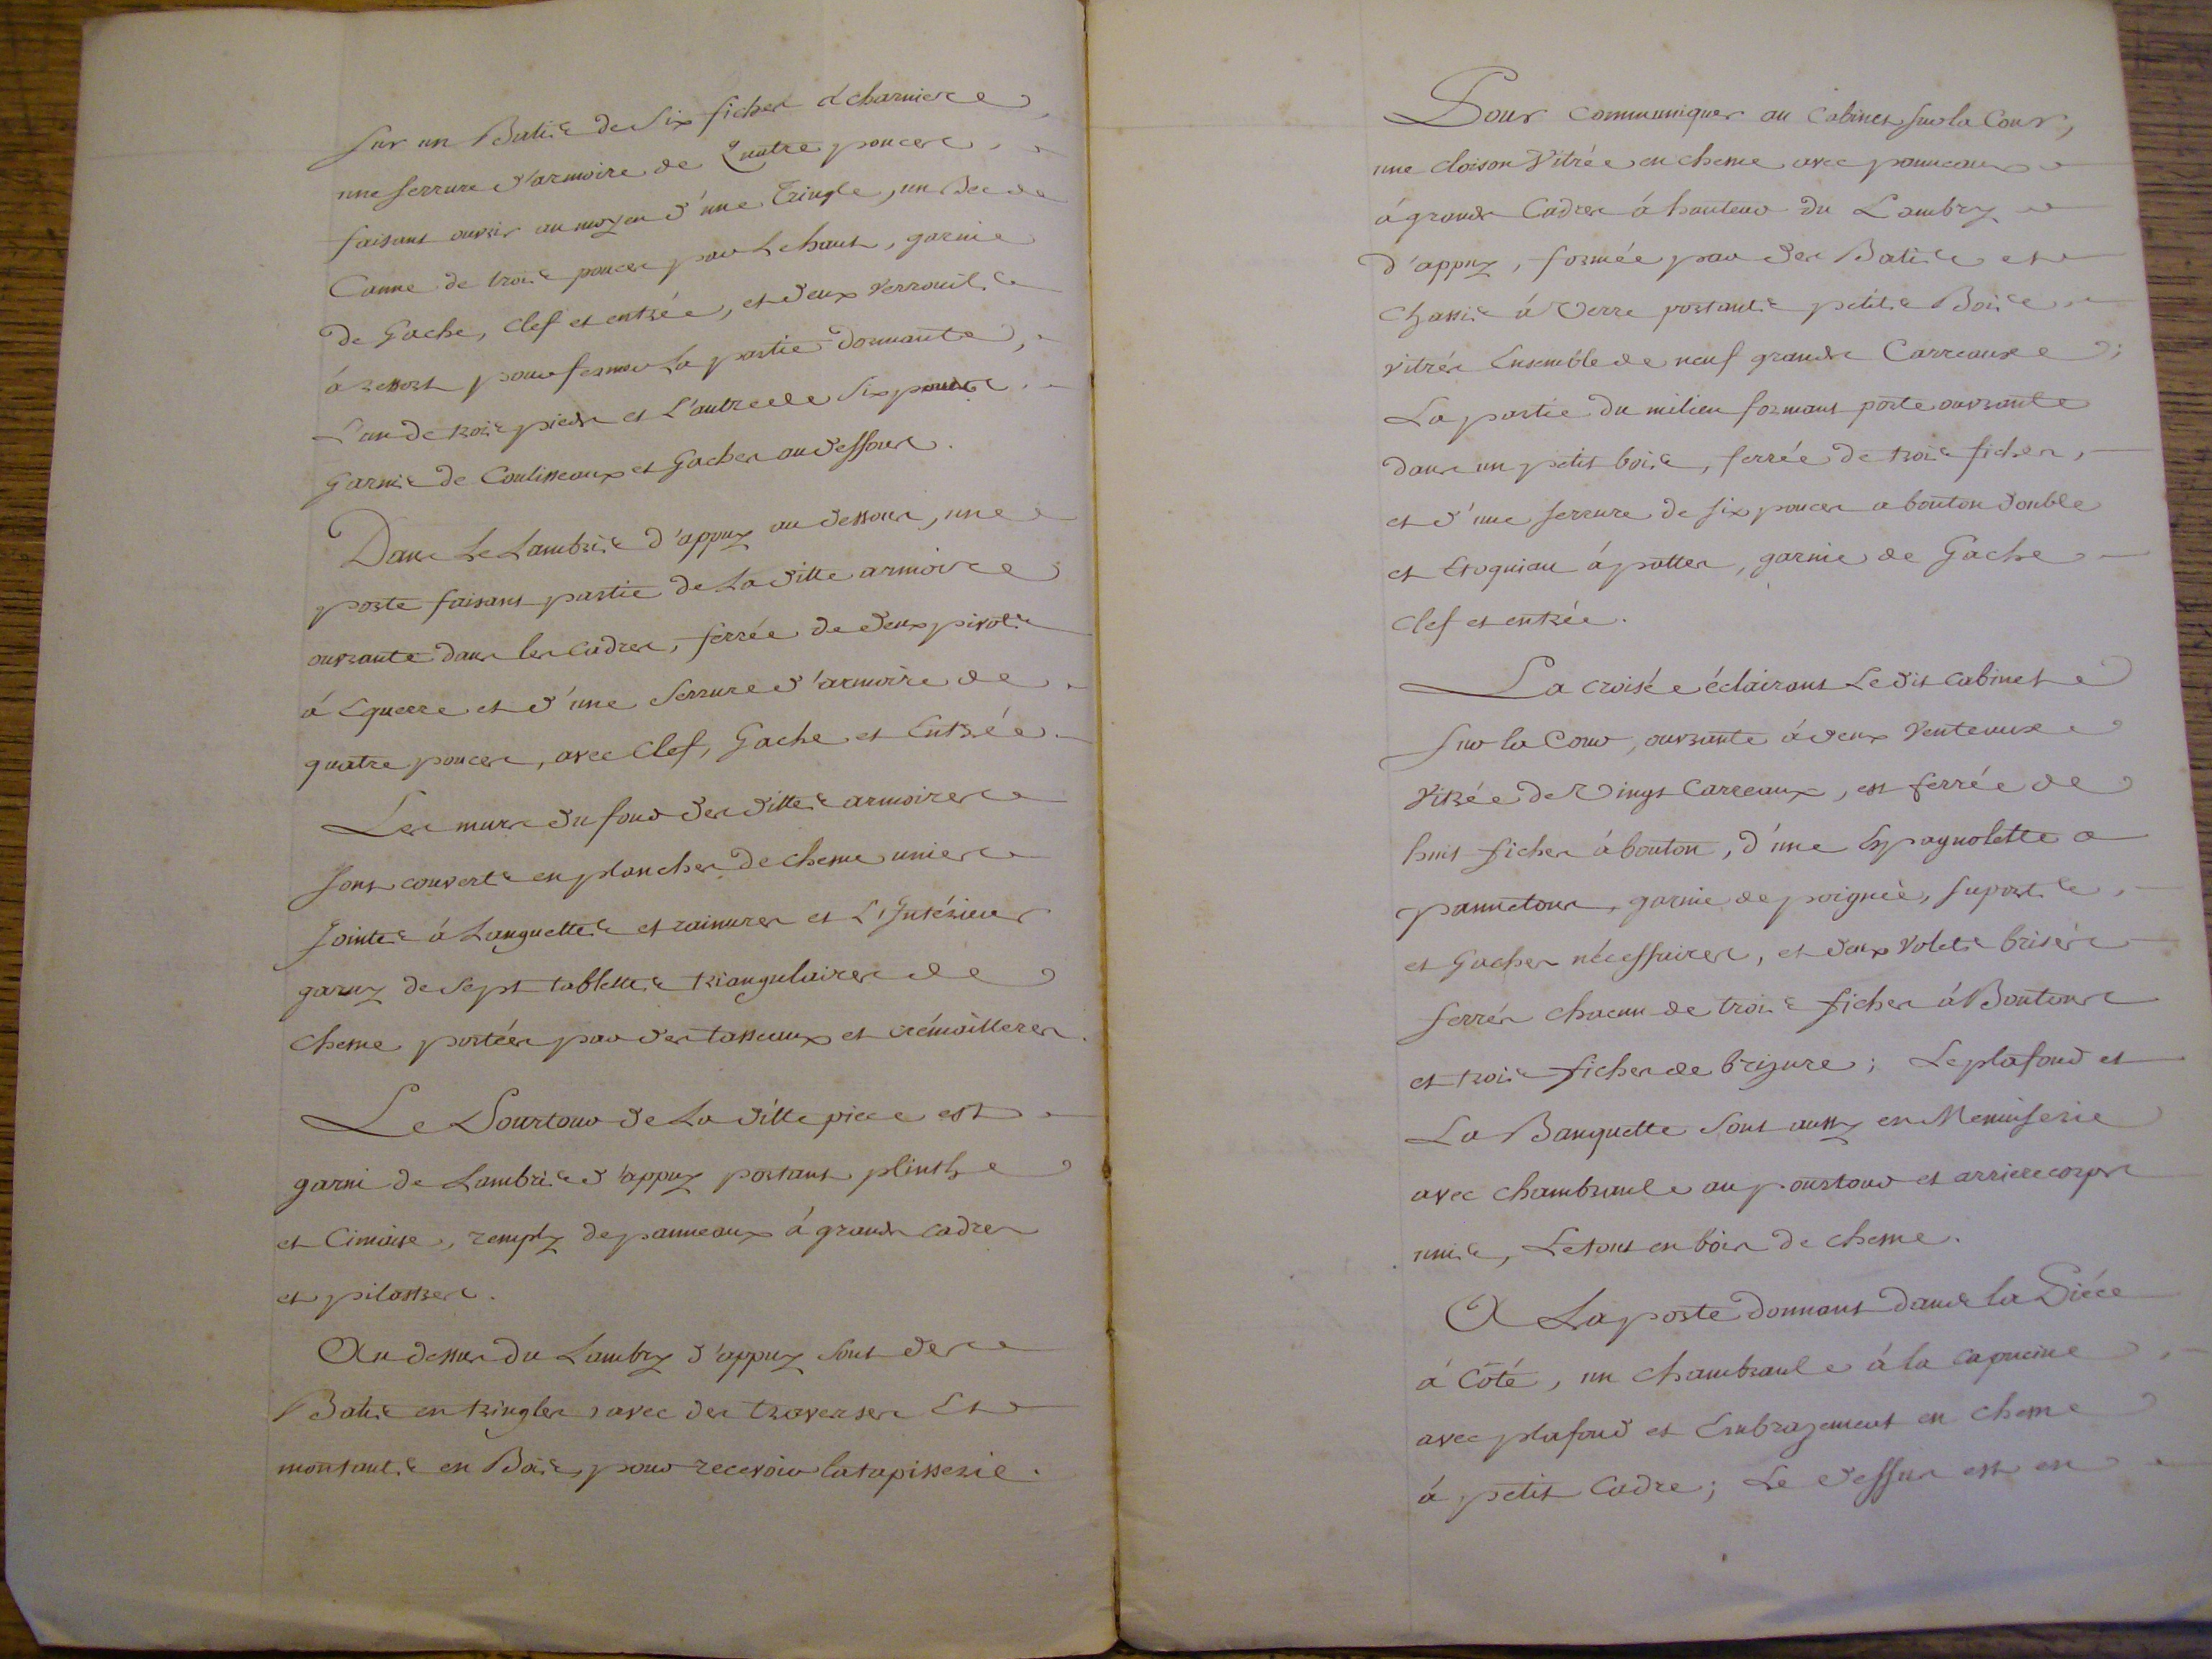 sur un Batis de six fiches à charniere
une serrure d'armoire de Quatre pouces
faisant ouvrir au moyen d'une Tringle, un Bec de
Canne de trois pouces par le haut, garnie
de Gache, Clef et entrée, et deux Verrouils
à ressort pour fermer La partie dormante,
L'un de trois pieds et L'autre de six pouces
garnis de Coulisseaux et Gaches au dessous.
Dans Le Lambris d'appuy au dessous, une
porte faisant partie de La ditte armoire
ouvrante dans les cadres, ferrée de deux pivots
à Equerre et d'une Serrure d'armoire de
quatre pouces, avec Clef, Gache et Entrée.
Les murs du fond des dittes armoires
sont couverts en planches de chesne unies
Jointes à Languettes et rainures et L'Intérieur
garny de Sept tablettes triangulaires de
chesne portées par des tasseaux et crémailleres.
Le Pourtour de La ditte piece est
garni de Lambris d'appuy portant plinthe
et Cimaise, remply de panneaux à grands cadres
et pilastres.
Au dessus du Lambry d'appuy sont des
Batis en tringles avec des traverses Et
montants en Bois, pour recevoir la tapisserie.
Pour communiquer au Cabinet sur la Cour,
une cloison Vitrée en chesne avec panneaux
à grands Cadres à hauteur du Lambry
d'appuy, formée par des Batis et
Chassis à Verre portants petits Bois
vitrés Ensemble de neuf grands Carreaux;
La partie du milieu formant porte ouvrante
dans un petit bois, ferrée de trois fiches,
et d'une serrure de six pouces a bouton double
et Etoquiau à pattes, garnie de Gache
Clef et entrée.
La croisée éclairant Le dit cabinet
sur la Cour, ouvrante à deux Venteaux
Vitrée de Vingt Carreaux, est ferrée de
huit fiches à bouton, d'une Espagnolette a
pannetons, garnie de poignée, suports,
et Gaches nécessaires, et deux Volets brisés
ferrés chacun de trois fiches à Boutons
et trois fiches de brizure; Le plafond et
La Banquette sont aussy en Menuiserie
avec chambranle au pourtour et arriere corps
unis, Le tout en bois de chesne.
A La porte donnant dans la Piéce
à Côté, un chambranle à la capucine
avec plafond et Embrazement en chesne
à petit Cadre; Le dessus est en